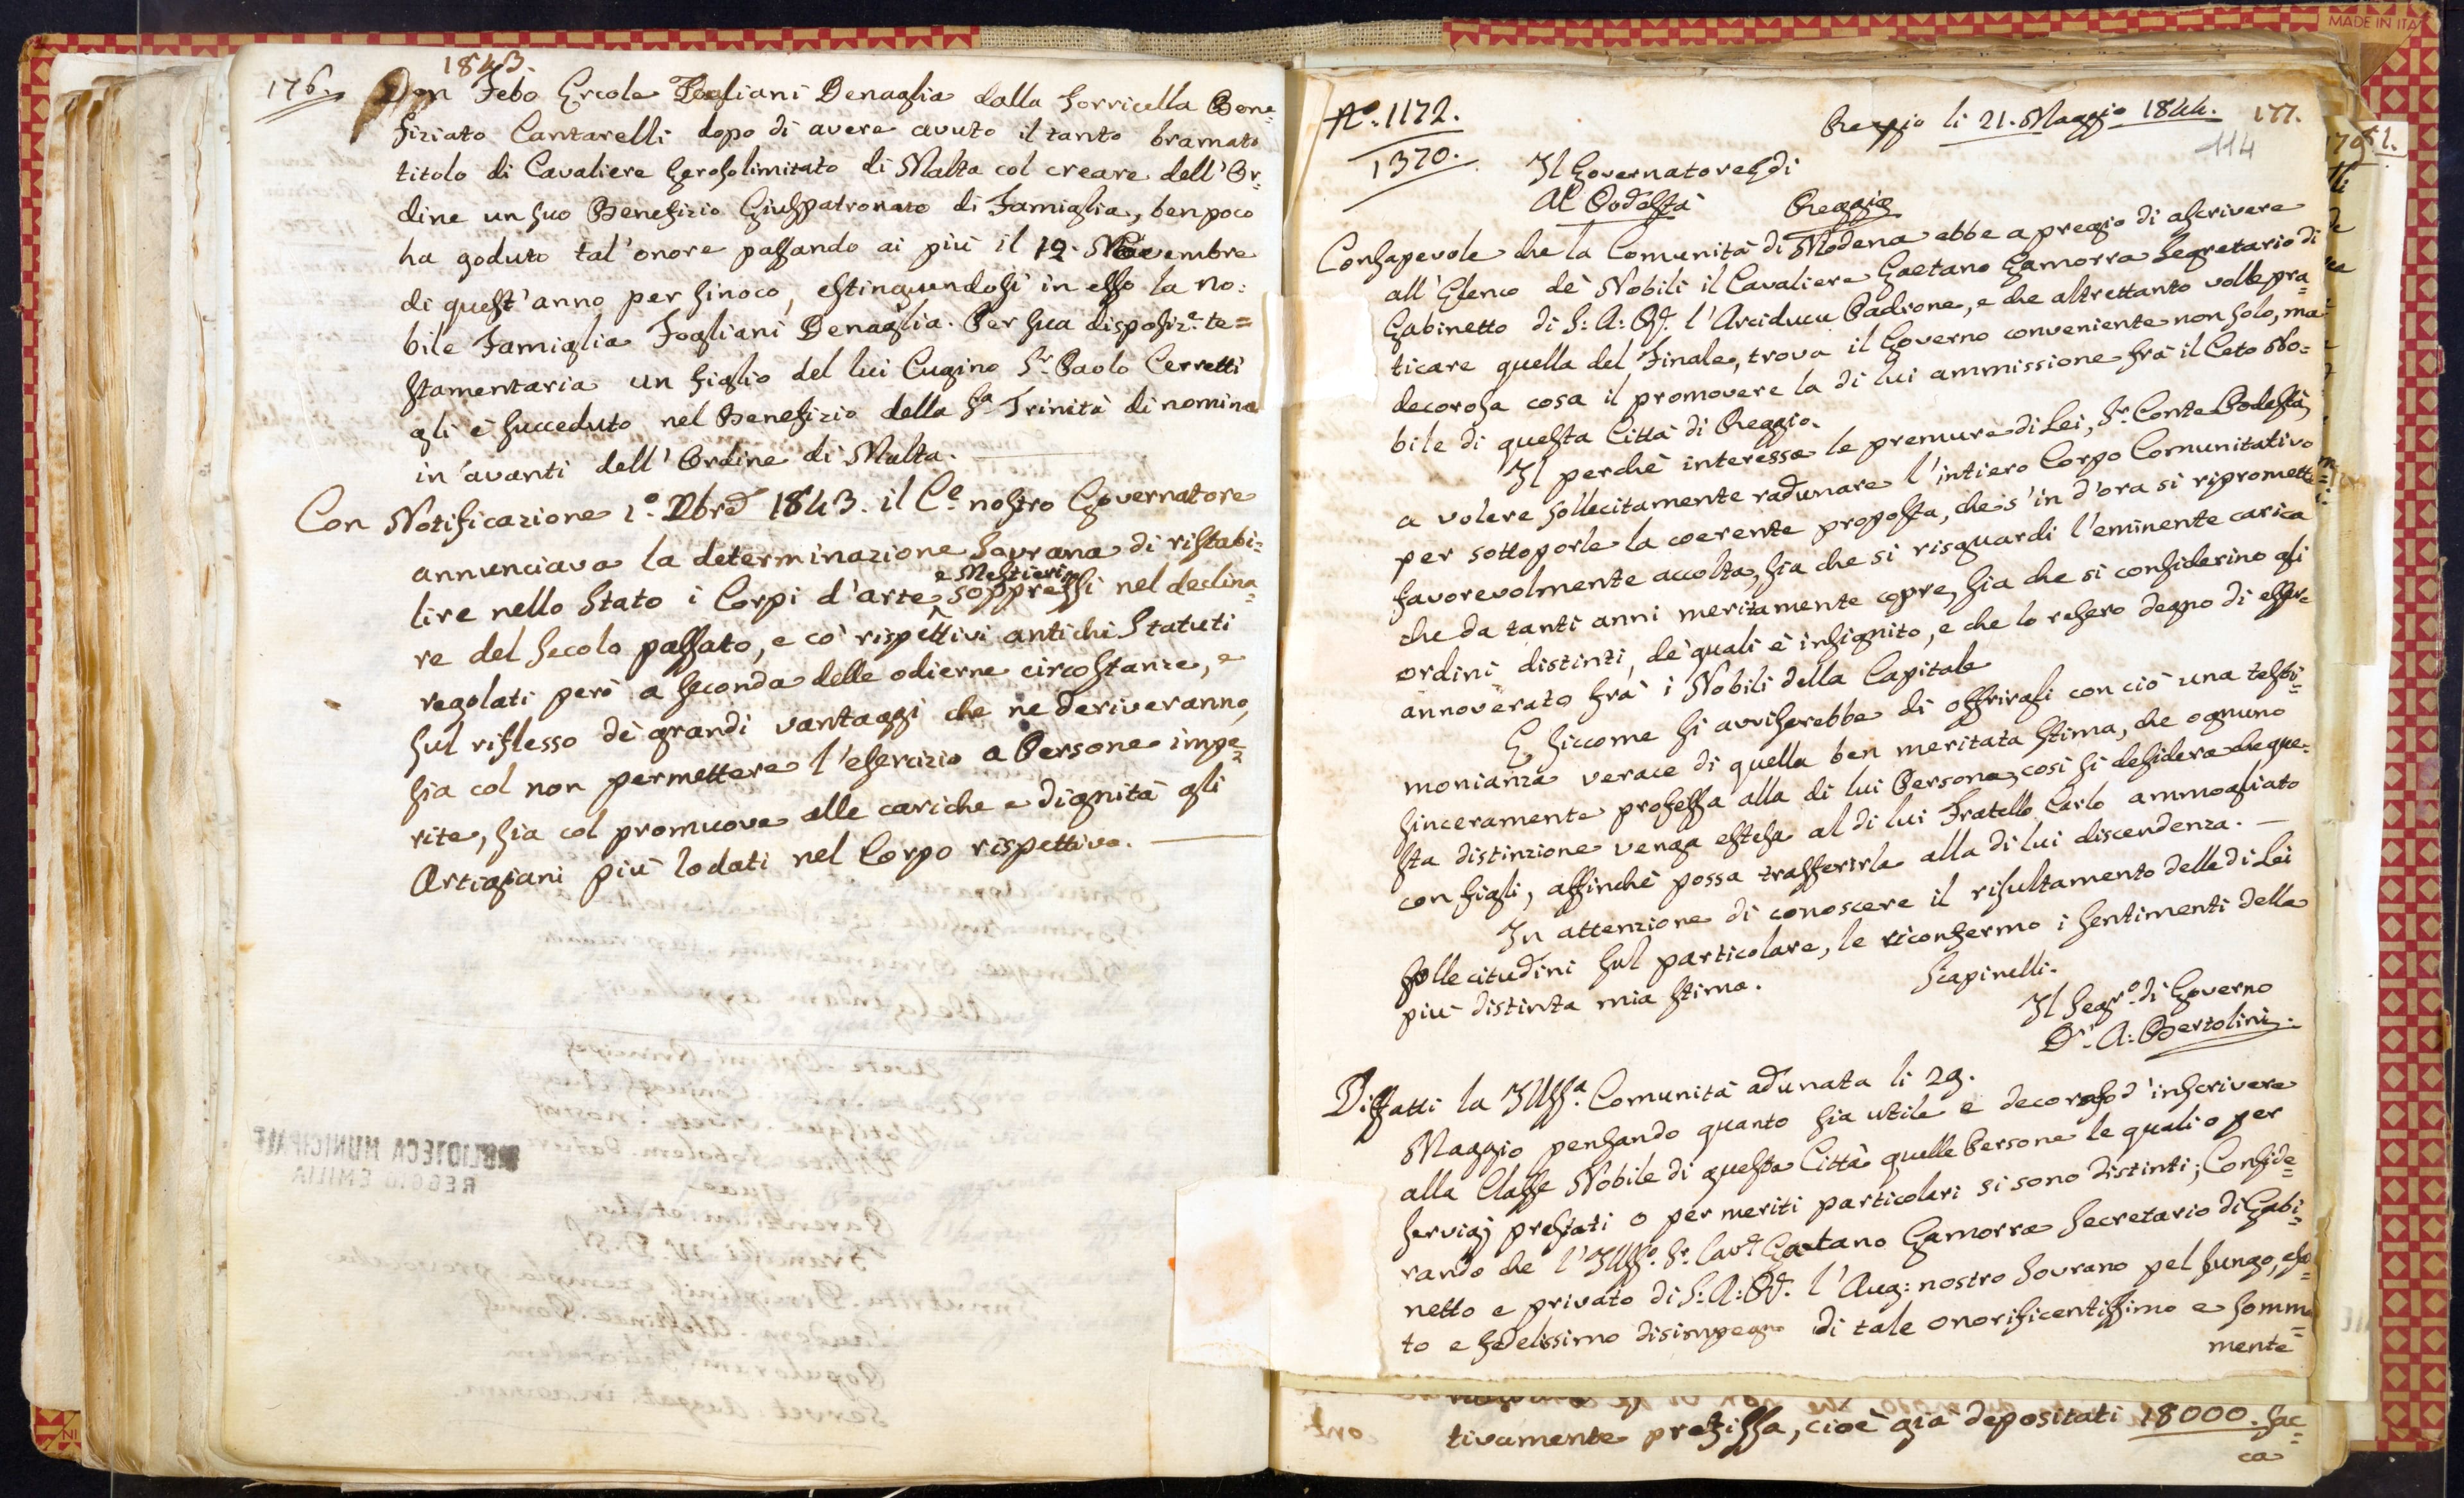 1843.
176.
Don Febo Ercole Fogliani Denaglia dalla Torricella Bene=
fiziato Cantarelli dopo di avere avuto il tanto bramato
titolo di Cavaliere Gerosolimitato di Malta col creare dell'Or=
dine un suo Benefizio Giuspatronato di Famiglia, ben poco
ha goduto tal'onore passando ai più il 12. Novembre
di quest'anno per sinoco, estinguendosi in esso la no=
bile Famiglia Fogliani Denaglia. Per sua disposiz.e te=
stamentaria un figlio del lui Cugino S.r Paolo Cerretti
gli è succeduto nel Benefizio della S.a Trinità di nomina
in avanti dell'Ordine di Malta.
Con Notificazione 1.o Xbre 1843. il C.e nostro Governatore
annunciava la determinazione Sovrana di ristabi=
lire nello Stato i Corpi d'arte e Mestieri soppressi nel declina=
re del Secolo passato, e co' rispettivi antichi Statuti
regolati però a seconda delle odierne circostanze, e
sul riflesso de' grandi vantaggi che ne deriveranno,
sia col non permettere l'esercizio a Persone impe=
rite, sia col promuove alle cariche e dignità gli
Artigiani più lodati nel Corpo rispettivo.
BIBLIOTECA MUNICIPALE
REGGIO EMILIA
N.o 1172.
1370.
Reggio li 21. Maggio 1844.
177.
114
Il Governatore di
Al Podestà Reggio
Consapevole che la Comunità di Modena ebbe a pregio di ascrivere
all'Elenco de' Nobili il Cavaliere Gaetano Gamorra Segretario di
Gabinetto di S: A: R. l'Arciduca Padrone, e che altrettanto volle pra=
ticare quella del Finale, trova il Governo conveniente non solo, ma
decorosa cosa il promovere la di lui ammissione frà il Ceto No=
bile di questa Città di Reggio.
Il perchè interessa le premure di Lei, S.r Conte Podestà,
a volere sollecitamente radunare l'intiero Corpo Comunitativo
per sottoporle la coerente proposta, che s'in d'ora si ripromette
favorevolmente accolta, sia che si risguardi l'eminente carica
che da tanti anni meritamente copre, sia che si considerino gli
ordini distinti, de' quali è insignito, e che lo resero degno di esser
annoverato frà i Nobili della Capitale
E siccome si avviserebbe di offrirgli con ciò una testi=
monianza verace di quella ben meritata stima, che ognuno
sinceramente professa alla di lui Persona, così si desidera che que=
sta distinzione venga estesa al di lui Fratello Carlo ammogliato
con figli, affinchè possa trasferirla alla di lui discendenza.
In attenzione di conoscere il risultamento delle di Lei
sollecitudini sul particolare, le riconfermo i sentimenti della
più distinta mia stima.
Scapinelli.
Il Seg.ro di Governo
D.r A: Bertolini.
Diffatti la Ill.ma Comunità adunata li 29.
Maggio pensando quanto sia utile e decoroso d'inscrivere
alla Classe Nobile di questa Città quelle Persone le quali o per
servigj prestati o per meriti particolari si sono distinti; Conside=
rando che l'Ill.mo S.r Cav.e Gaetano Gamorra Secretario di Gabi=
netto e privato di S: A: R. l'Aug: nostro Sovrano pel lungo, esa=
to e fedelissimo disimpegno di tale onorificentissimo e somma=
mente
tivamente prefissa, cioè già depositati 18000. sac=
ca